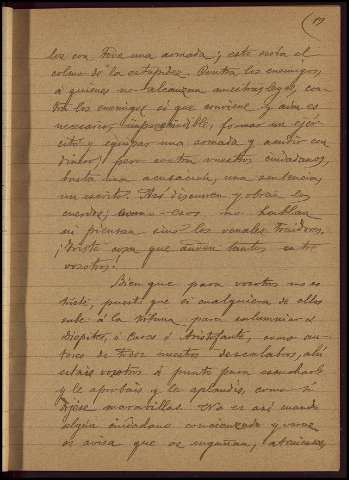 (19
los con toda una armada; esto sería el
colmo de la estupidez. Contra los enemigos,
á quienes no alcanzan nuestras leyes, con-
tra los enemigos sí que conviene y aun es
necesario, imprescindible, formar un ejér-
cito y equipar una armada y acudir con
dinero; pero contra vuestros ciudadanos,
basta una acusación, una sentencia,
un escrito? Así discurren y obran los
cuerdos; eso no hablan
ni piensan sino los venales traidores.
¡Triste cosa que anden tantos entre
vosotros!
Bien que para vosotros no es
triste, puesto que si cualquiera de ellos
sube á la tribuna para calumniar á
Diopites, á Cares ó Aristofonte, como au-
tores de todos nuestros descalabros, ahí
estais vosotros á punto para escucharle
y le aprobais y le aplaudis, como si
dijese maravillas. No es así cuando
algún ciudadano concienzudo y veraz
os avisa que os engañan, atenienses,